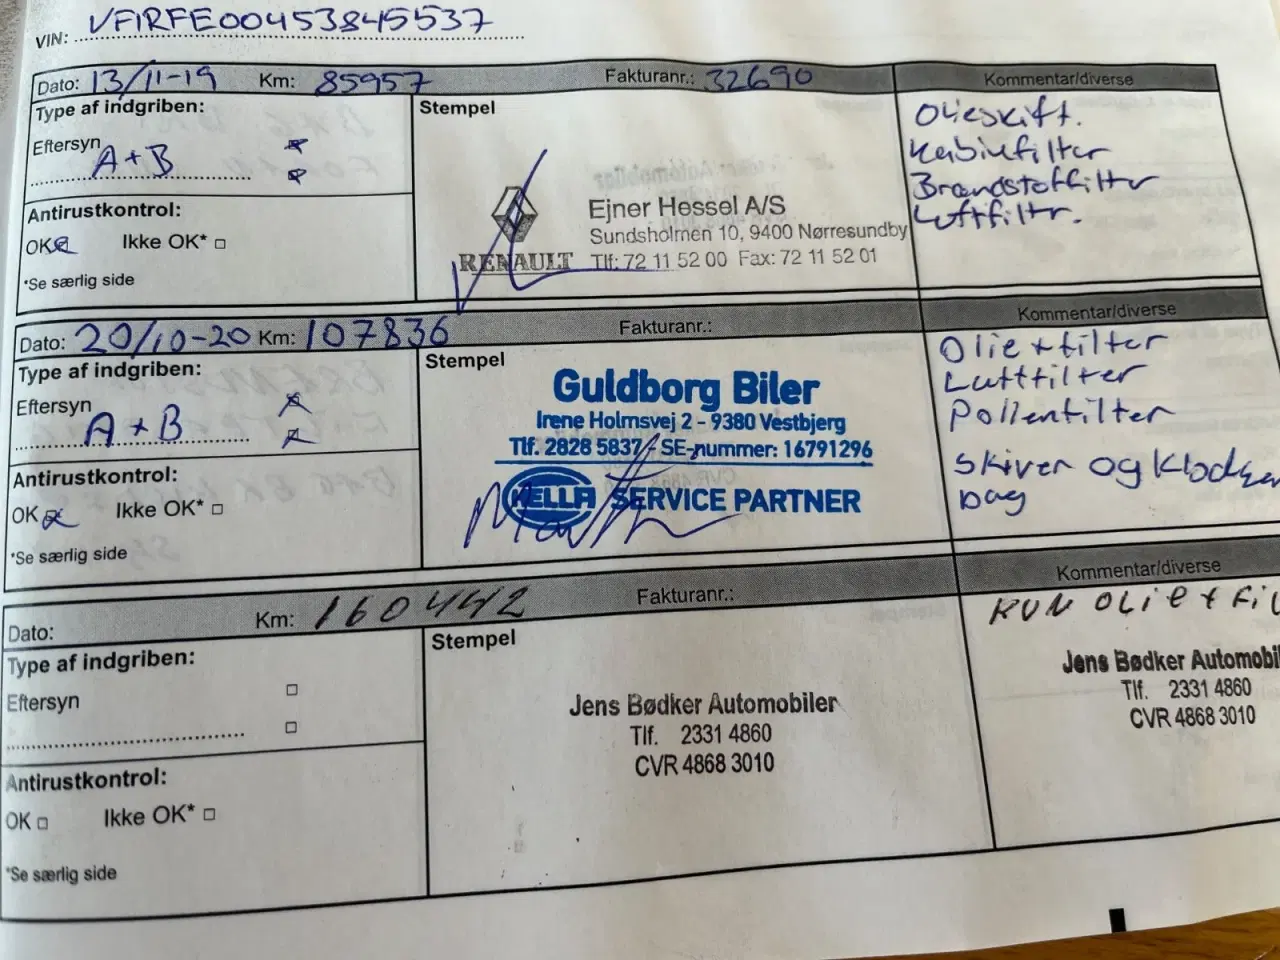 VIN: VF1RFE00453845537
Dato: 13/11-19 Km: 85957 Fakturanr.: 32690 Kommentar/diverse
Type af indgriben:
Stempel
Eftersyn
A+B
Antirustkontrol:
OK Ikke OK*
*Se særlig side
RENAULT
Ejner Hessel A/S
Sundsholmen 10, 9400 Nørresundby
Tlf: 72 11 52 00 Fax: 72 11 52 01
Olieskift.
Kabinefilter
Brændstoffilter
Luftfiltr.
Dato: 20/10-20 Km: 107836 Fakturanr.: Kommentar/diverse
Type af indgriben:
Stempel
Eftersyn
A+B
Antirustkontrol:
OK Ikke OK*
*Se særlig side
Guldborg Biler
Irene Holmsvej 2 - 9380 Vestbjerg
Tlf. 2828 5837 - SE-nummer: 16791296
HELLA SERVICE PARTNER
Olie + filter
Luftfilter
Pollenfilter
Skiver og Klodser
bag
Dato: Km: 160442 Fakturanr.: Kommentar/diverse
Type af indgriben:
Stempel
Eftersyn
Antirustkontrol:
OK Ikke OK*
*Se særlig side
Jens Bødker Automobiler
Tlf. 2331 4860
CVR 4868 3010
KUN OLIE + FIL
Jens Bødker Automobil
Tlf. 2331 4860
CVR 4868 3010